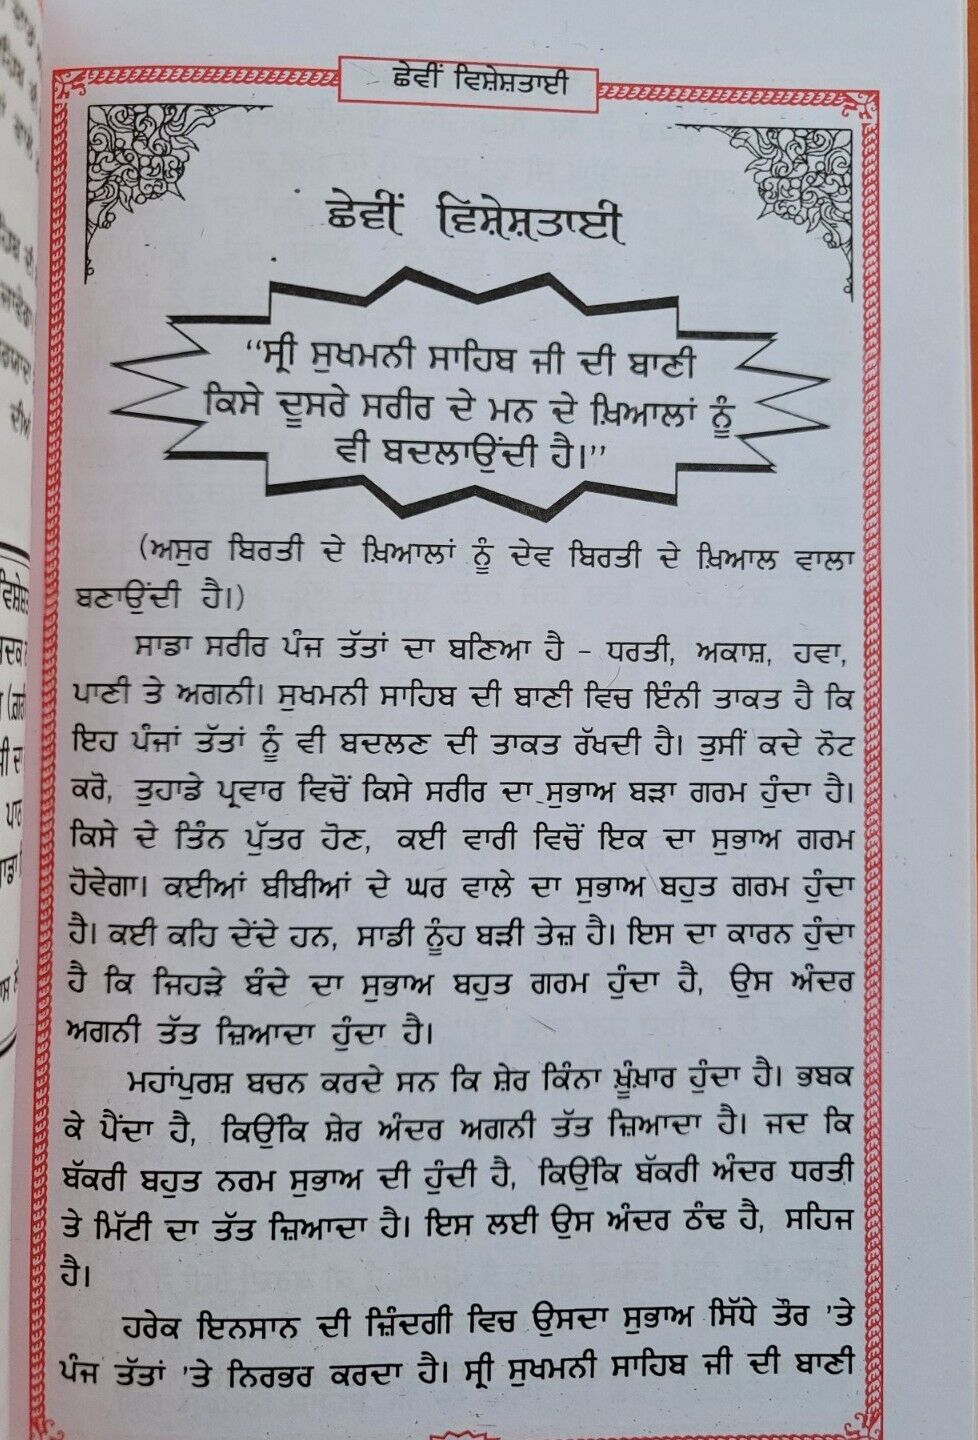 ਛੇਵੀਂ ਵਿਸ਼ੇਸ਼ਤਾਈ
ਛੇਵੀਂ ਵਿਸ਼ੇਸ਼ਤਾਈ
“ਸ੍ਰੀ ਸੁਖਮਨੀ ਸਾਹਿਬ ਜੀ ਦੀ ਬਾਣੀ
ਕਿਸੇ ਦੂਸਰੇ ਸਰੀਰ ਦੇ ਮਨ ਦੇ ਖ਼ਿਆਲਾਂ ਨੂੰ
ਵੀ ਬਦਲਾਉਂਦੀ ਹੈ।”
(ਅਸੁਰ ਬਿਰਤੀ ਦੇ ਖ਼ਿਆਲਾਂ ਨੂੰ ਦੇਵ ਬਿਰਤੀ ਦੇ ਖ਼ਿਆਲ ਵਾਲਾ
ਬਣਾਉਂਦੀ ਹੈ।)
ਸਾਡਾ ਸਰੀਰ ਪੰਜ ਤੱਤਾਂ ਦਾ ਬਣਿਆ ਹੈ - ਧਰਤੀ, ਅਕਾਸ਼, ਹਵਾ,
ਪਾਣੀ ਤੇ ਅਗਨੀ। ਸੁਖਮਨੀ ਸਾਹਿਬ ਦੀ ਬਾਣੀ ਵਿਚ ਇੰਨੀ ਤਾਕਤ ਹੈ ਕਿ
ਇਹ ਪੰਜਾਂ ਤੱਤਾਂ ਨੂੰ ਵੀ ਬਦਲਣ ਦੀ ਤਾਕਤ ਰੱਖਦੀ ਹੈ। ਤੁਸੀਂ ਕਦੇ ਨੋਟ
ਕਰੋ, ਤੁਹਾਡੇ ਪ੍ਰਵਾਰ ਵਿਚੋਂ ਕਿਸੇ ਸਰੀਰ ਦਾ ਸੁਭਾਅ ਬੜਾ ਗਰਮ ਹੁੰਦਾ ਹੈ।
ਕਿਸੇ ਦੇ ਤਿੰਨ ਪੁੱਤਰ ਹੋਣ, ਕਈ ਵਾਰੀ ਵਿਚੋਂ ਇਕ ਦਾ ਸੁਭਾਅ ਗਰਮ
ਹੋਵੇਗਾ। ਕਈਆਂ ਬੀਬੀਆਂ ਦੇ ਘਰ ਵਾਲੇ ਦਾ ਸੁਭਾਅ ਬਹੁਤ ਗਰਮ ਹੁੰਦਾ
ਹੈ। ਕਈ ਕਹਿ ਦੇਂਦੇ ਹਨ, ਸਾਡੀ ਨੂੰਹ ਬੜੀ ਤੇਜ਼ ਹੈ। ਇਸ ਦਾ ਕਾਰਨ ਹੁੰਦਾ
ਹੈ ਕਿ ਜਿਹੜੇ ਬੰਦੇ ਦਾ ਸੁਭਾਅ ਬਹੁਤ ਗਰਮ ਹੁੰਦਾ ਹੈ, ਉਸ ਅੰਦਰ
ਅਗਨੀ ਤੱਤ ਜ਼ਿਆਦਾ ਹੁੰਦਾ ਹੈ।
ਮਹਾਂਪੁਰਸ਼ ਬਚਨ ਕਰਦੇ ਸਨ ਕਿ ਸ਼ੇਰ ਕਿੰਨਾ ਖ਼ੂੰਖ਼ਾਰ ਹੁੰਦਾ ਹੈ। ਭਬਕ
ਕੇ ਪੈਂਦਾ ਹੈ, ਕਿਉਂਕਿ ਸ਼ੇਰ ਅੰਦਰ ਅਗਨੀ ਤੱਤ ਜ਼ਿਆਦਾ ਹੈ। ਜਦ ਕਿ
ਬੱਕਰੀ ਬਹੁਤ ਨਰਮ ਸੁਭਾਅ ਦੀ ਹੁੰਦੀ ਹੈ, ਕਿਉਂਕਿ ਬੱਕਰੀ ਅੰਦਰ ਧਰਤੀ
ਤੇ ਮਿੱਟੀ ਦਾ ਤੱਤ ਜ਼ਿਆਦਾ ਹੈ। ਇਸ ਲਈ ਉਸ ਅੰਦਰ ਠੰਢ ਹੈ, ਸਹਿਜ
ਹੈ।
ਹਰੇਕ ਇਨਸਾਨ ਦੀ ਜ਼ਿੰਦਗੀ ਵਿਚ ਉਸਦਾ ਸੁਭਾਅ ਸਿੱਧੇ ਤੌਰ 'ਤੇ
ਪੰਜ ਤੱਤਾਂ 'ਤੇ ਨਿਰਭਰ ਕਰਦਾ ਹੈ। ਸ੍ਰੀ ਸੁਖਮਨੀ ਸਾਹਿਬ ਜੀ ਦੀ ਬਾਣੀ